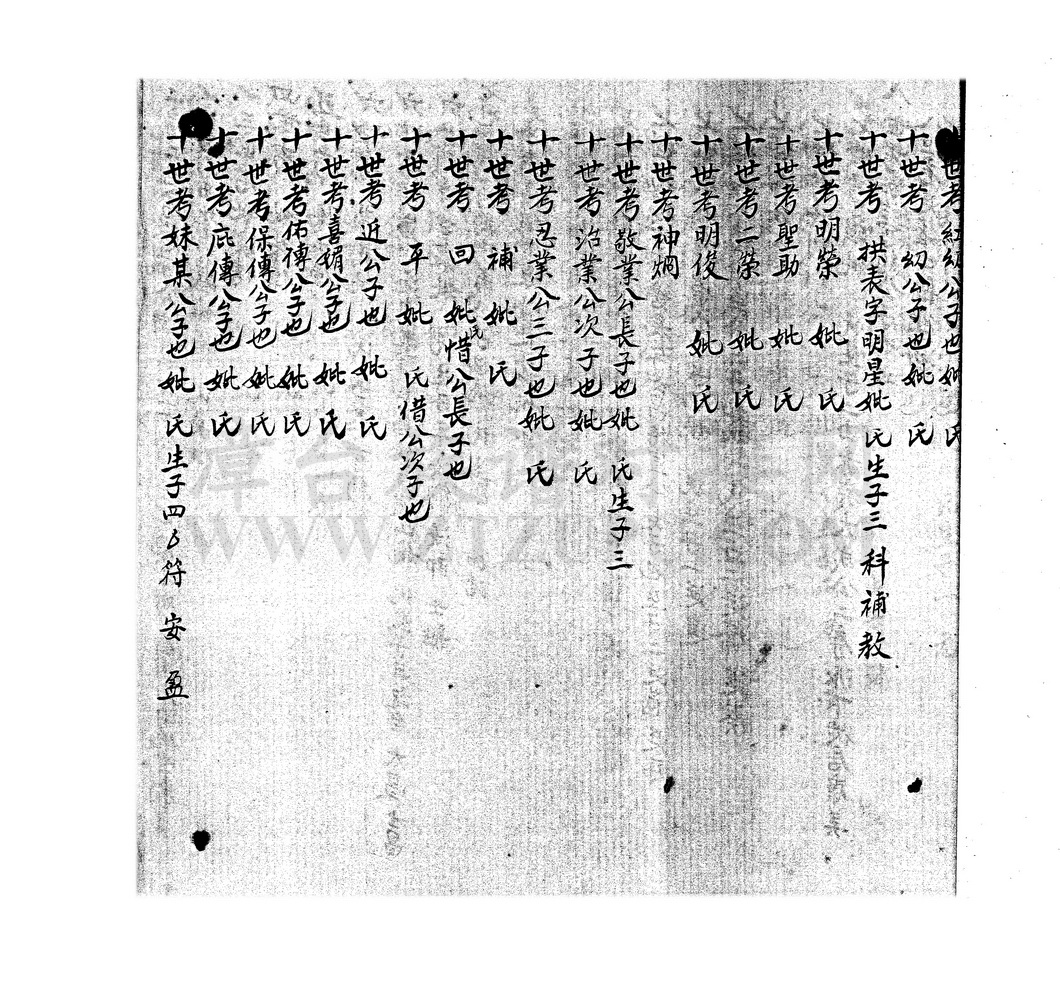 世考 紅幼公子也妣 氏
十世考 幼公子也妣 氏
十世考 拱表字明星妣 氏生子三 科 補 教
十世考明榮 妣 氏
十世考聖助 妣 氏
十世考二榮 妣 氏
十世考明俊 妣 氏
十世考神炯
十世考敬業公長子也妣 氏生子三
十世考治業公次子也妣 氏
十世考忍業公三子也妣 氏
十世考 補 妣 氏
十世考 回 妣氏惜公長子也
十世考 平 妣 氏借公次子也
十世考近公子也 妣 氏
十世考喜娟公子也 妣 氏
十世考佑傳公子也 妣 氏
十世考保傳公子也 妣 氏
十世考庇傳公子也 妣 氏
十世考妹某公子也 妣 氏生子四 符 安 盈
漳台族谱对接网
WWW.ZTZUPU.COM